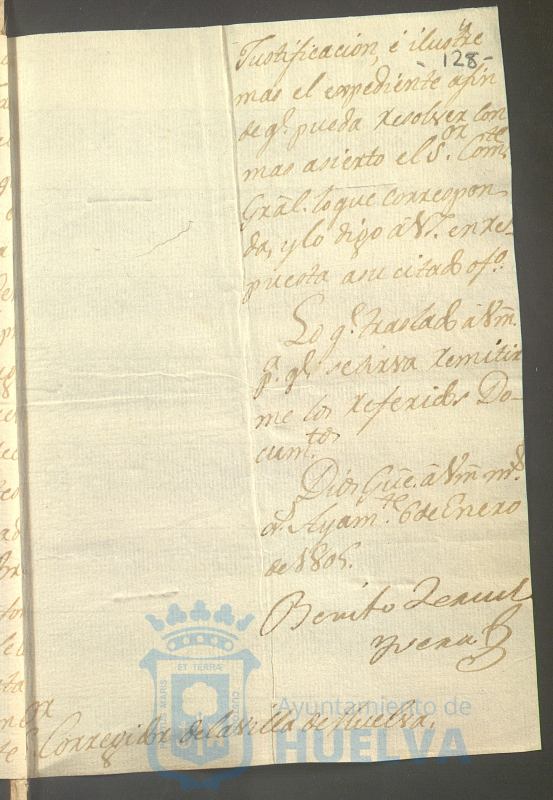 - 128 -
Justificacion, é ilustre
mas el expediente afin
de q.e pueda resolver con
mas asierto el S.or Com.te
Gral. lo que correspon
da, y lo digo á V. en res
puesta a su citado of.o
Lo q.e traslado á Vm.
p.a q.e se sirva remitir
me los referidos Do-
cum.tos
Dios Gue. á Vm. m.s
a.s Ayam.te 6 de Enero
de 1805.
Benito
S.or Corregidor de la Villa de Huelva.
ET TERRÆ
PORTUS MARIS
CUSTODIO
Ayuntamiento de
HUELVA